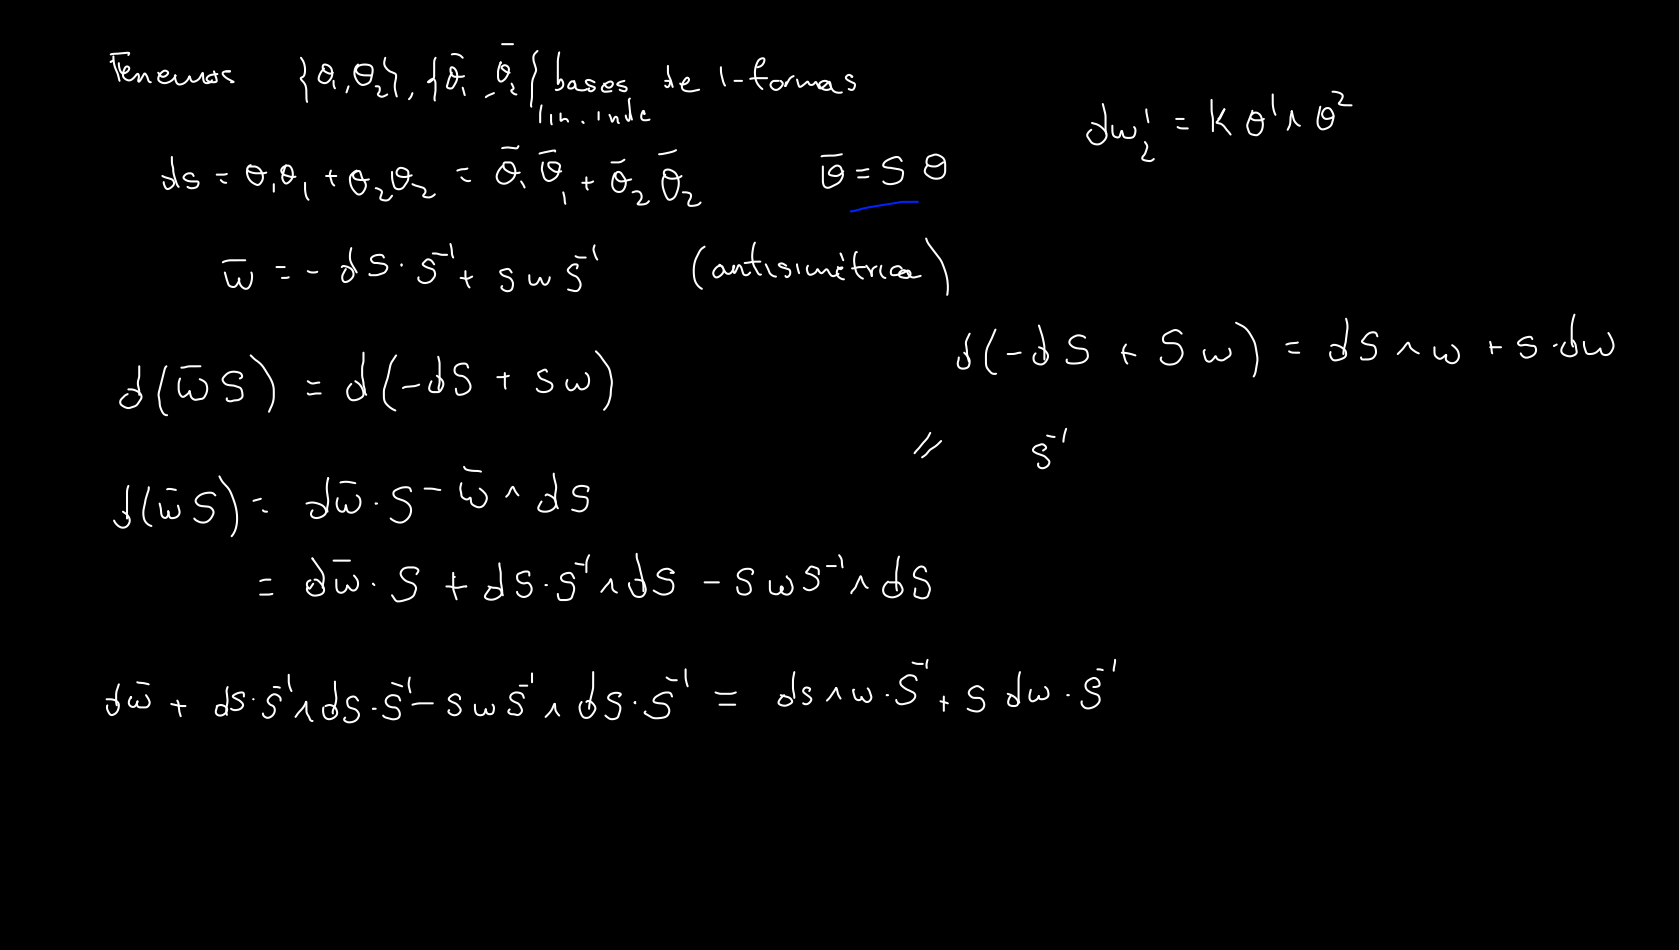 Tenemos {θ₁,θ₂}, {θ̄₁,θ̄₂} bases de 1-formas
lin. inde
dω₂¹ = K θ¹∧θ²
ds = θ₁θ₁ + θ₂θ₂ = θ̄₁θ̄₁ + θ̄₂θ̄₂ θ̄ = S θ
ω̄ = - dS · S⁻¹ + S ω S⁻¹ (antisimétrica)
d(-dS + S ω) = dS ∧ ω + S · dω
d(ω̄ S) = d(-dS + S ω)
// S⁻¹
d(ω̄ S) = dω̄ · S - ω̄ ∧ dS
= dω̄ · S + dS · S⁻¹ ∧ dS - S ω S⁻¹ ∧ dS
dω̄ + dS · S⁻¹ ∧ dS · S⁻¹ - S ω S⁻¹ ∧ dS · S⁻¹ = dS ∧ ω · S⁻¹ + S dω · S⁻¹